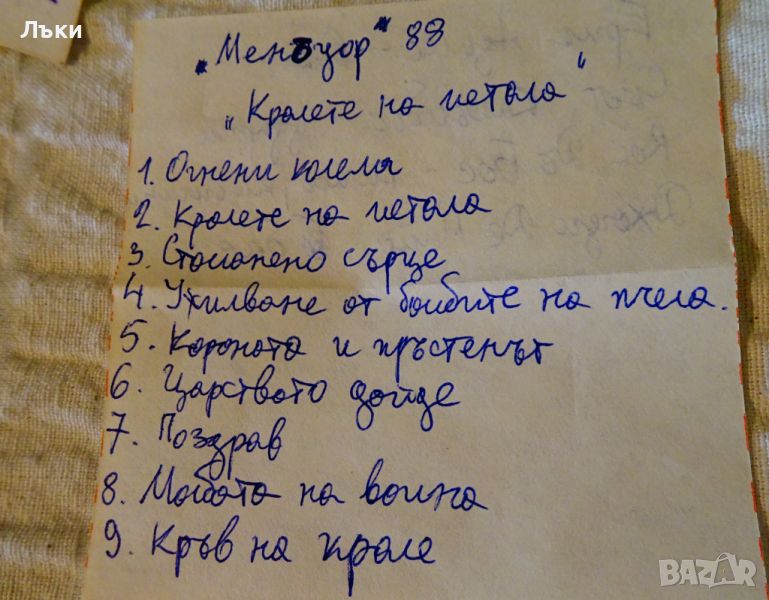 Лъки
„Меноуор" 88
„Кралете на метала"
1. Огнени колела
2. Кралете на метала
3. Стоманено сърце
4. Ухилване от бомбите на пчела.
5. Короната и пръстенът
6. Царството дойде
7. Поздрав
8. Молбата на воина
9. Кръв на крале
BAZAR